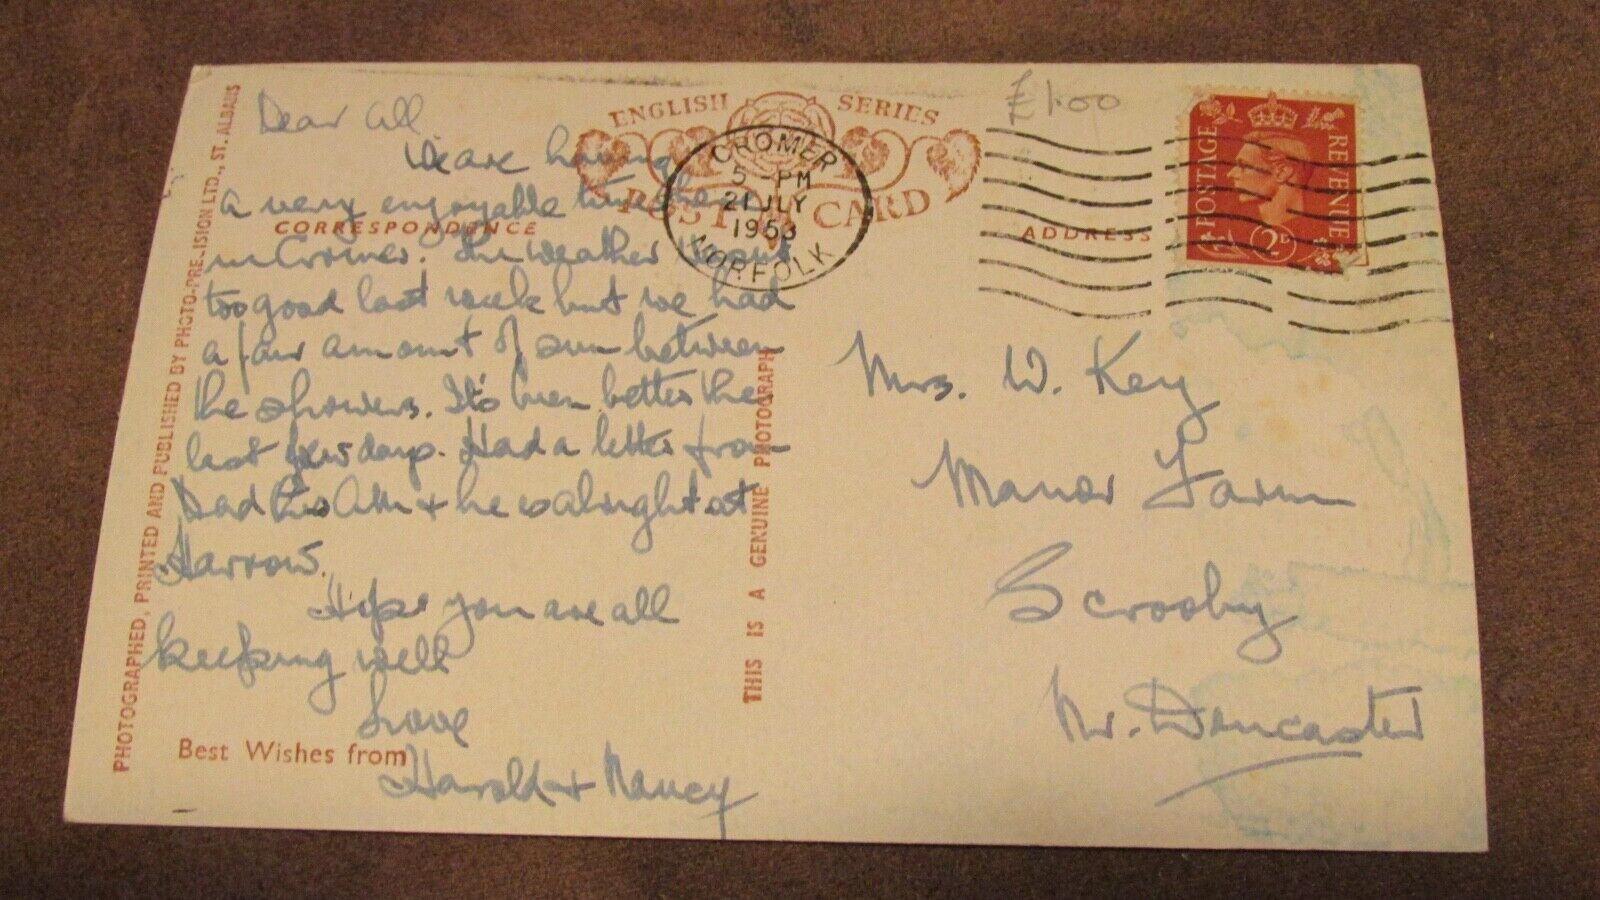 PHOTOGRAPHED, PRINTED AND PUBLISHED BY PHOTO-PRECISION LTD., ST. ALBANS
ENGLISH SERIES
POST CARD
CORRESPONDENCE
Dear all.
We are having
a very enjoyable time here
in Cromer. The weather wasnt
too good last week but we had
a fair amount of sun between
the showers. It's been better the
last few days. Had a letter from
Dad this a.m. & he is alright at
Harrow.
Hope you are all
keeping well
Love
Best Wishes from
Harold & Nancy
THIS IS A GENUINE PHOTOGRAPH
CROMER
5 - PM
21 JLY
1953
NORFOLK
£1.00
POSTAGE REVENUE
2D
ADDRESS
Mrs. W. Key
Manor Farm
Scrooby
Nr. Doncaster